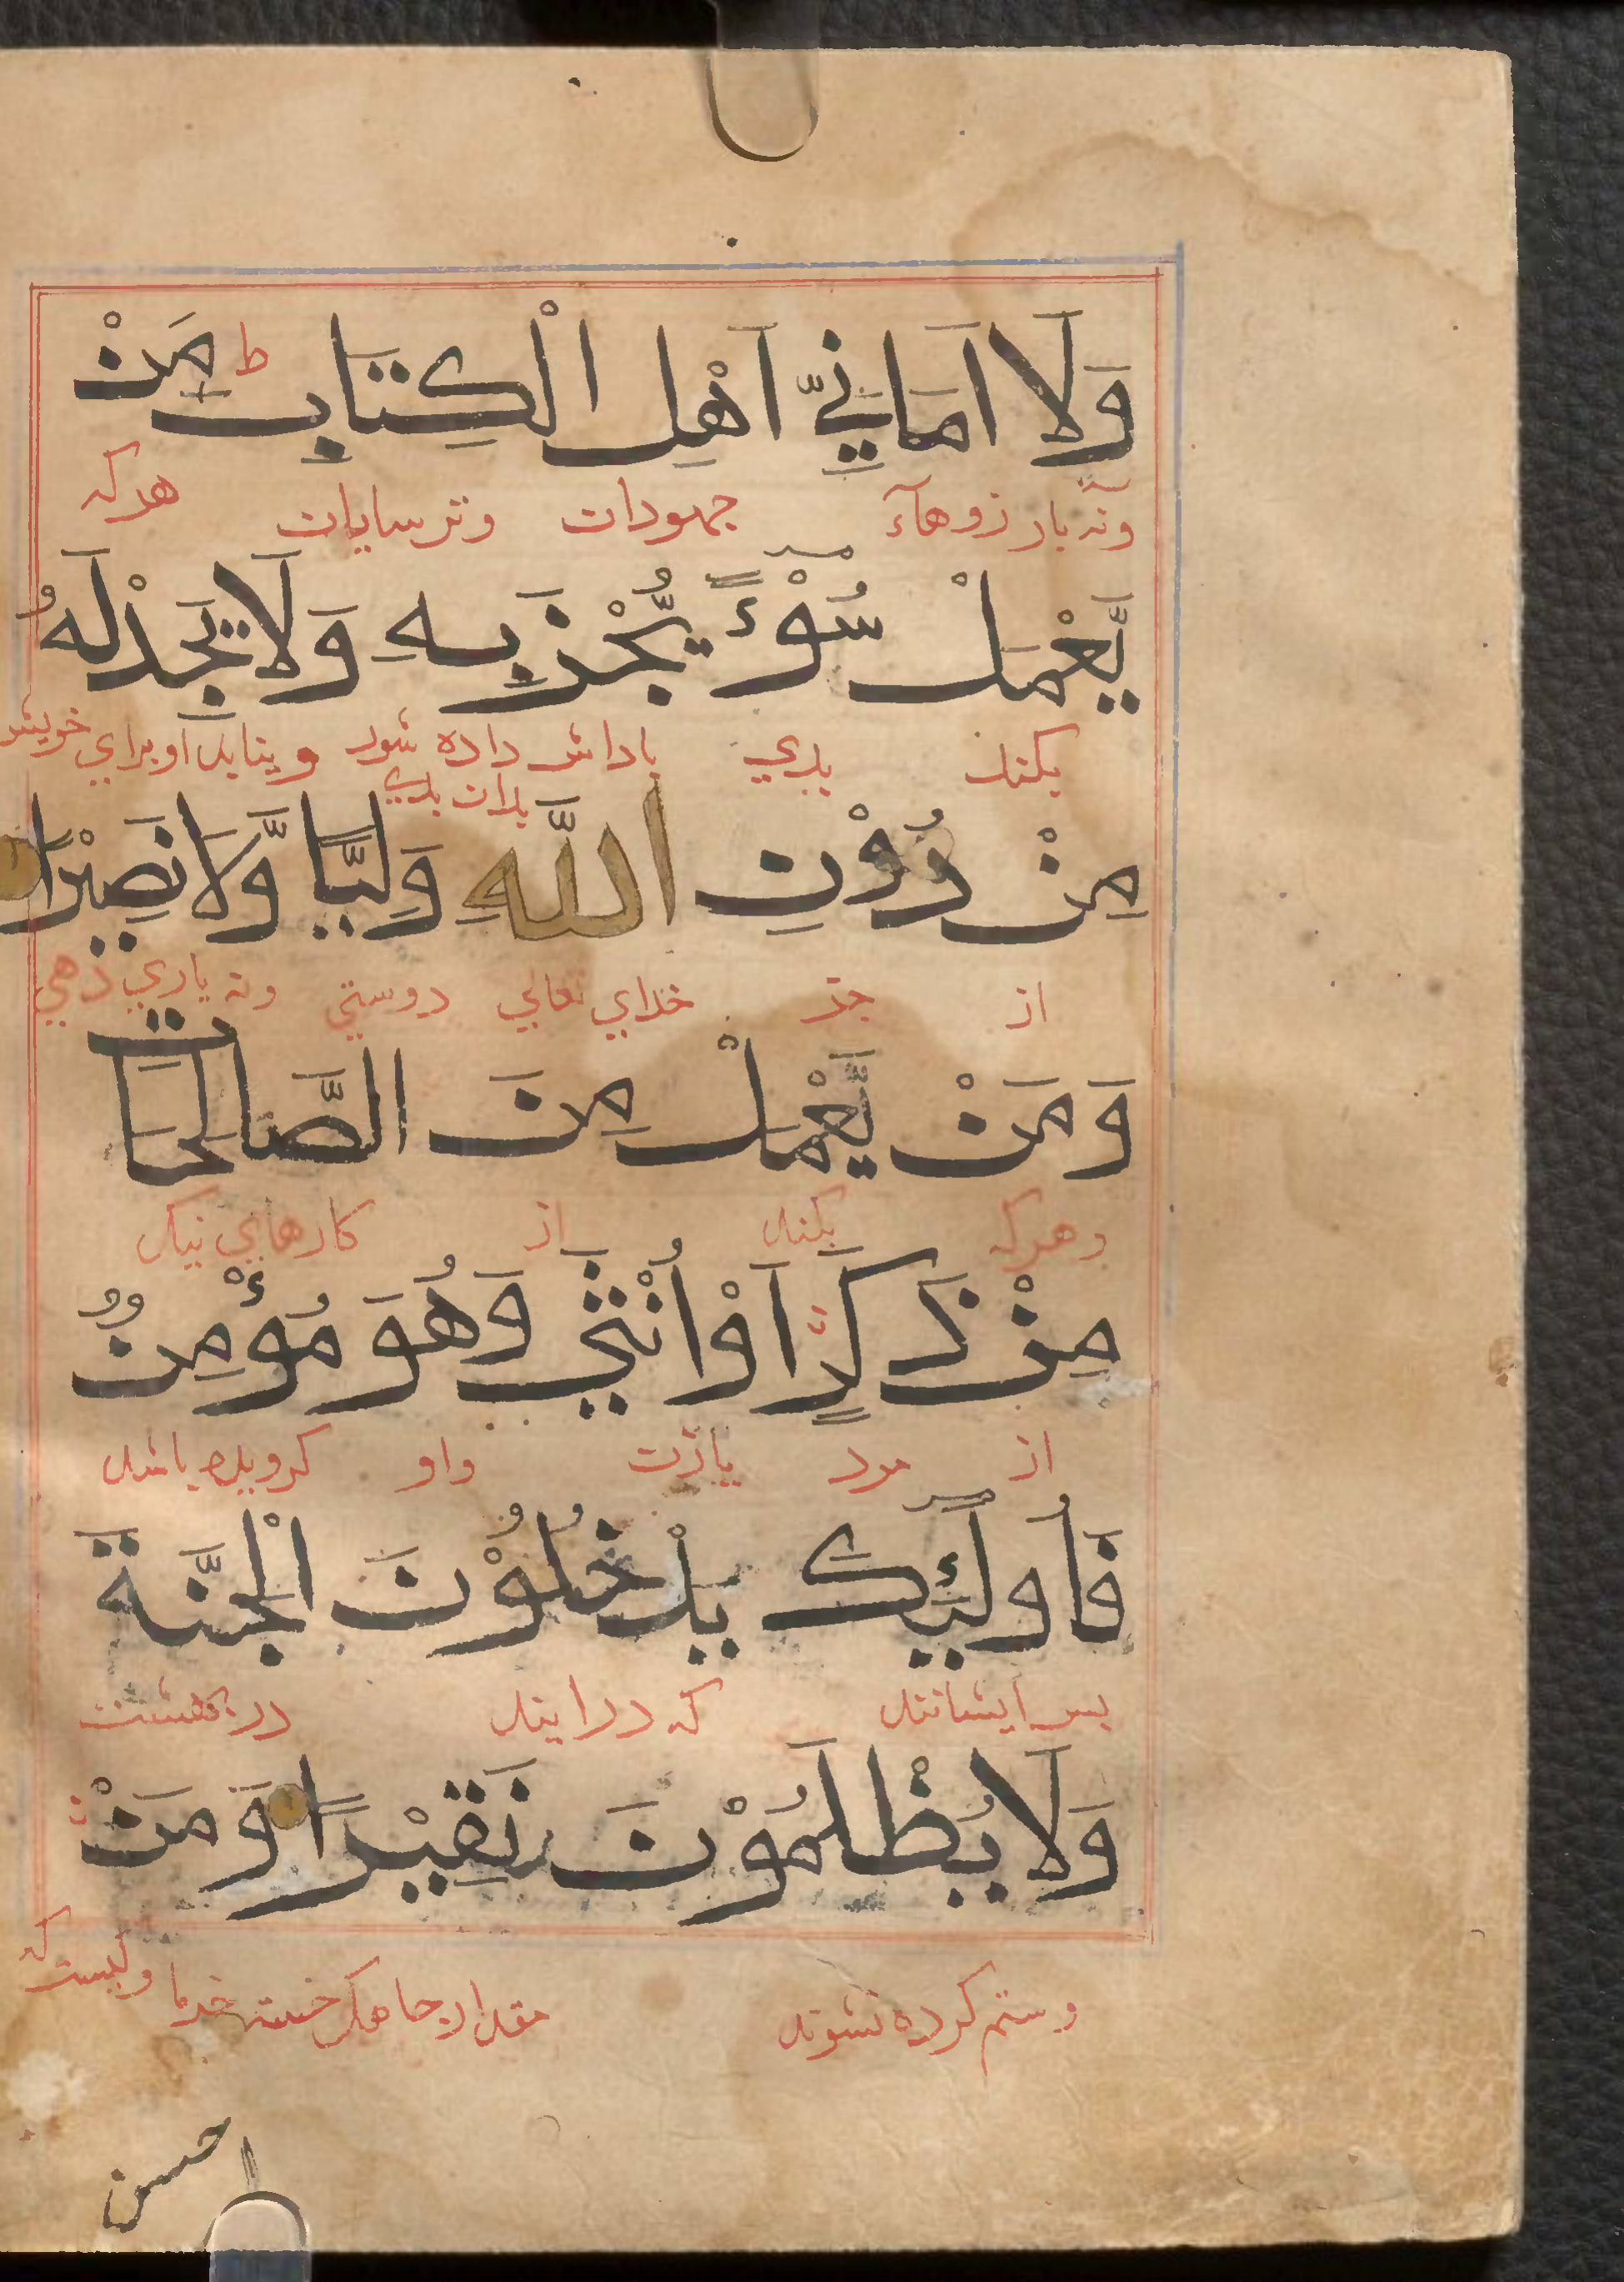 وَلَا اَمَانِيِّ اَهْلِ الْكِتَابِ ط مَنْ
ونه بارزوهاء جهودان وترسايان هركه
يَّعْمَلْ سُوْءً يُّجْزَ بِهِ وَلَا يَجِدْ لَهُ
بكند بدي باداش داده شود ونيابد او براي خويش
بدان بدي
مِنْ دُوْنِ اللّٰهِ وَلِيًّا وَّلَا نَصِيْرًا
از جز خداي تعالي دوستي ونه ياري دهي
وَمَنْ يَّعْمَلْ مِنَ الصَّالِحَاتِ
وهركه بكند از كارهاي نيك
مِنْ ذَكَرٍ اَوْ اُنْثٰي وَهُوَ مُؤْمِنٌ
از مرد يا زن واو كرويده باشد
فَاُولٰئِكَ يَدْخُلُوْنَ الْجَنَّةَ
بس ايشانند كه درايند در بهشت
وَلَا يُظْلَمُوْنَ نَقِيْرًا وَمَنْ
وستم كرده نشوند مقدار خسته خرما وكيست كه
احسن